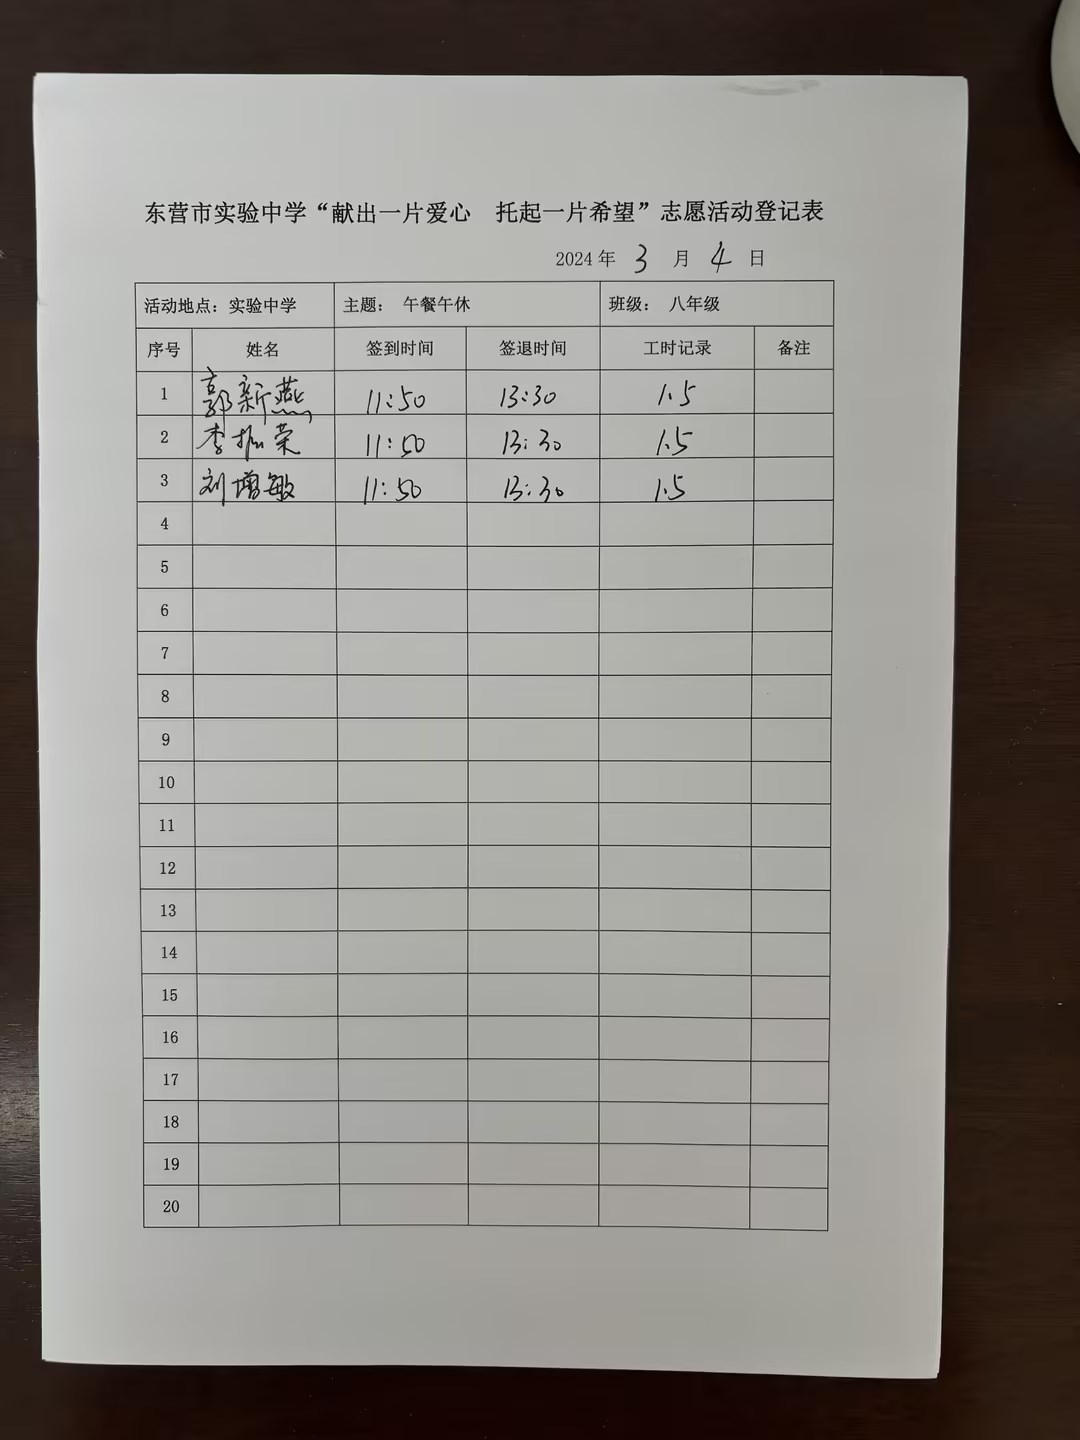 东营市实验中学“献出一片爱心 托起一片希望”志愿活动登记表
2024 年 3 月 4 日
活动地点：实验中学 主题： 午餐午休 班级： 八年级
序号 姓名 签到时间 签退时间 工时记录 备注
1 郭新燕 11:50 13:30 1.5
2 李振荣 11:50 13:30 1.5
3 刘增敏 11:50 13:30 1.5
4
5
6
7
8
9
10
11
12
13
14
15
16
17
18
19
20